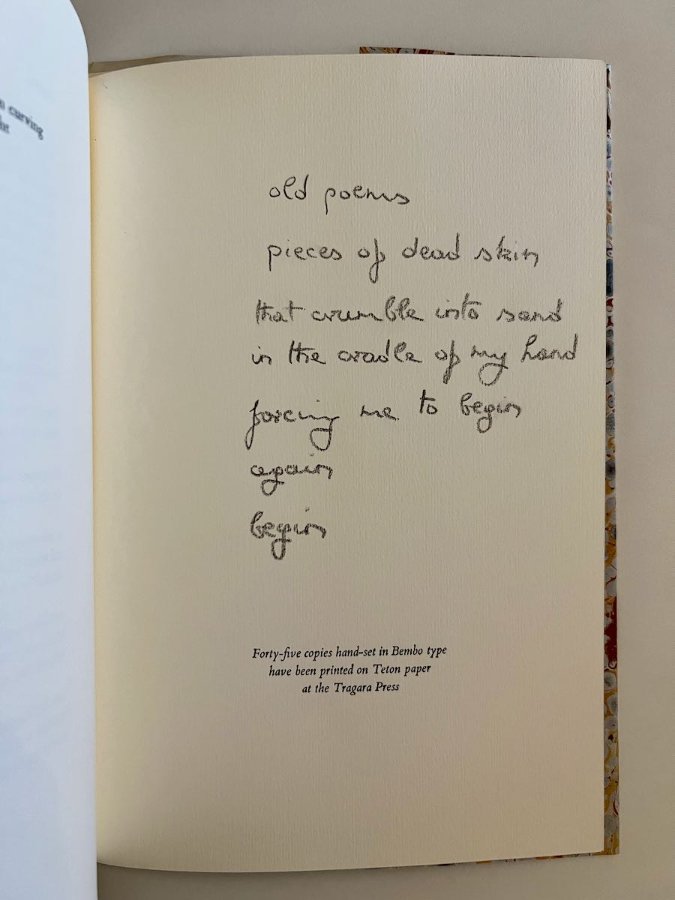 curving
old poems
pieces of dead skin
that crumble into sand
in the cradle of my hand
forcing me to begin
again
begin
Forty-five copies hand-set in Bembo type
have been printed on Teton paper
at the Tragara Press